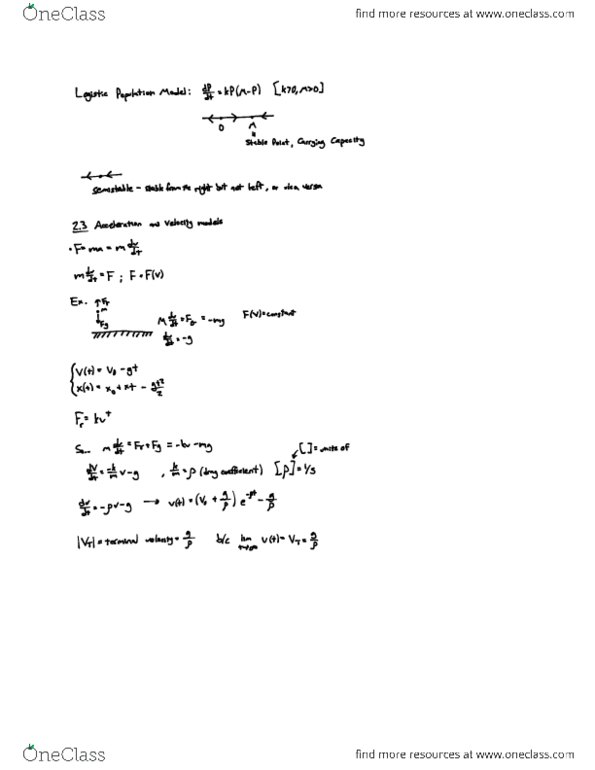 OneClass
find more resources at www.oneclass.com
Logistic Population Model: dP/dt = kP(M-P) [k>0, M>0]
0 M
Stable Point, Carrying Capacity
semistable - stable from the right but not left, or vice versa
2.3 Acceleration and Velocity models
· F = ma = m dv/dt
m dv/dt = F ; F = F(v)
Ex. ↑Fr
m
↓Fg
M dv/dt = Fg = -mg F(v)=constant
dv/dt = -g
{ v(t) = v₀ - gt
x(t) = x₀ + xt - gt²/2
Fr = kv
So... m dv/dt = Fr + Fg = -kv - mg [ ] = units of
dv/dt = -k/m v - g , k/m = ρ (drag coefficient) [ρ] = 1/s
dv/dt = -ρv - g → v(t) = (v₀ + g/ρ) e^-ρt - g/ρ
|V_T| = terminal velocity = g/ρ b/c lim t→∞ v(t) = V_T = g/ρ
OneClass
find more resources at www.oneclass.com